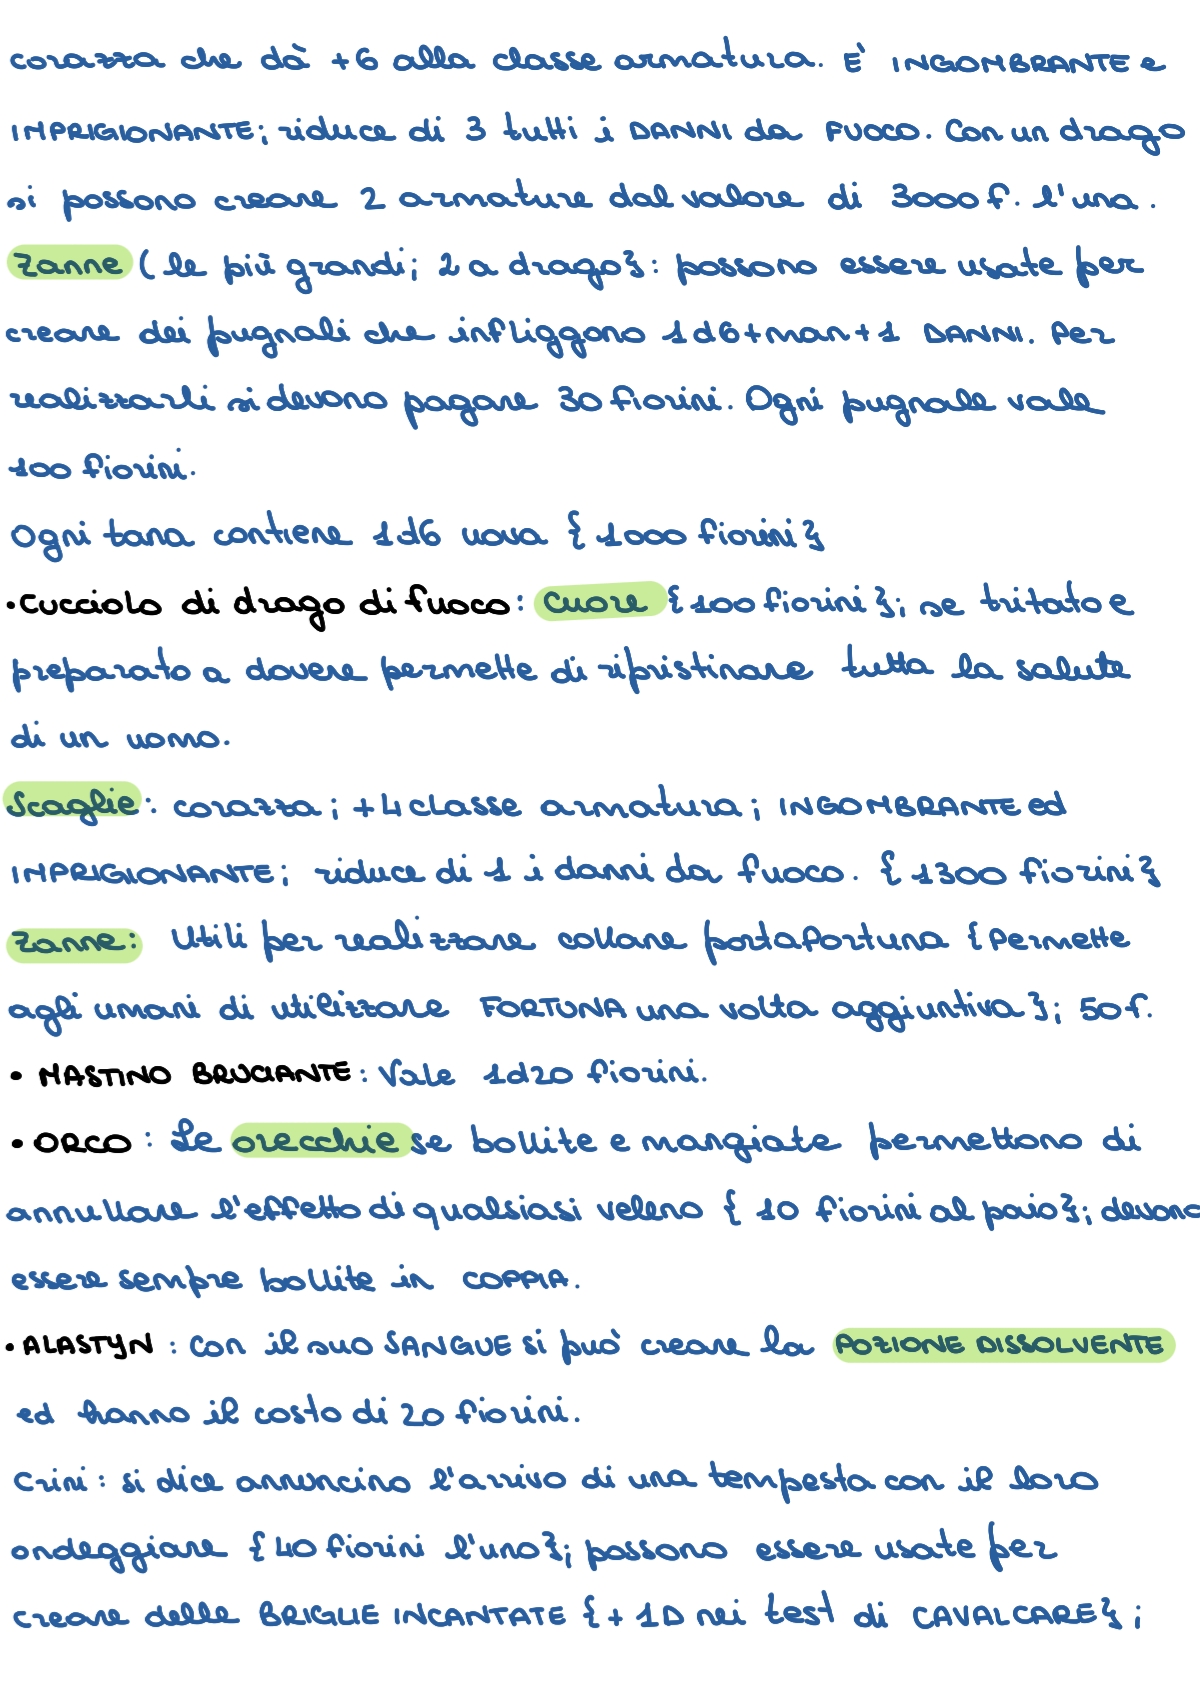 corazza che dà +6 alla classe armatura. E' INGOMBRANTE e
IMPRIGIONANTE; riduce di 3 tutti i DANNI da FUOCO. Con un drago
si possono creare 2 armature dal valore di 3000 f. l'una.
Zanne ( le più grandi; 2 a drago}: possono essere usate per
creare dei pugnali che infliggono 1d6+man+1 DANNI. Per
realizzarli si devono pagare 30 fiorini. Ogni pugnale vale
100 fiorini.
Ogni tana contiene 1d6 uova { 1000 fiorini}
•Cucciolo di drago di fuoco: Cuore { 100 fiorini }; se tritato e
preparato a dovere permette di ripristinare tutta la salute
di un uomo.
Scaglie: corazza; +4 classe armatura; INGOMBRANTE ed
IMPRIGIONANTE; riduce di 1 i danni da fuoco. { 1300 fiorini}
Zanne: Utili per realizzare collane portafortuna {Permette
agli umani di utilizzare FORTUNA una volta aggiuntiva}; 50 f.
• MASTINO BRUCIANTE: Vale 1d20 fiorini.
• ORCO: Le orecchie se bollite e mangiate permettono di
annullare l'effetto di qualsiasi veleno { 10 fiorini al paio}; devono
essere sempre bollite in COPPIA.
• ALASTYN : Con il suo SANGUE si può creare la POZIONE DISSOLVENTE
ed hanno il costo di 20 fiorini.
Crini: si dice annuncino l'arrivo di una tempesta con il loro
ondeggiare { 40 fiorini l'uno}; possono essere usate per
creare delle BRIGLIE INCANTATE {+1D nei test di CAVALCARE};